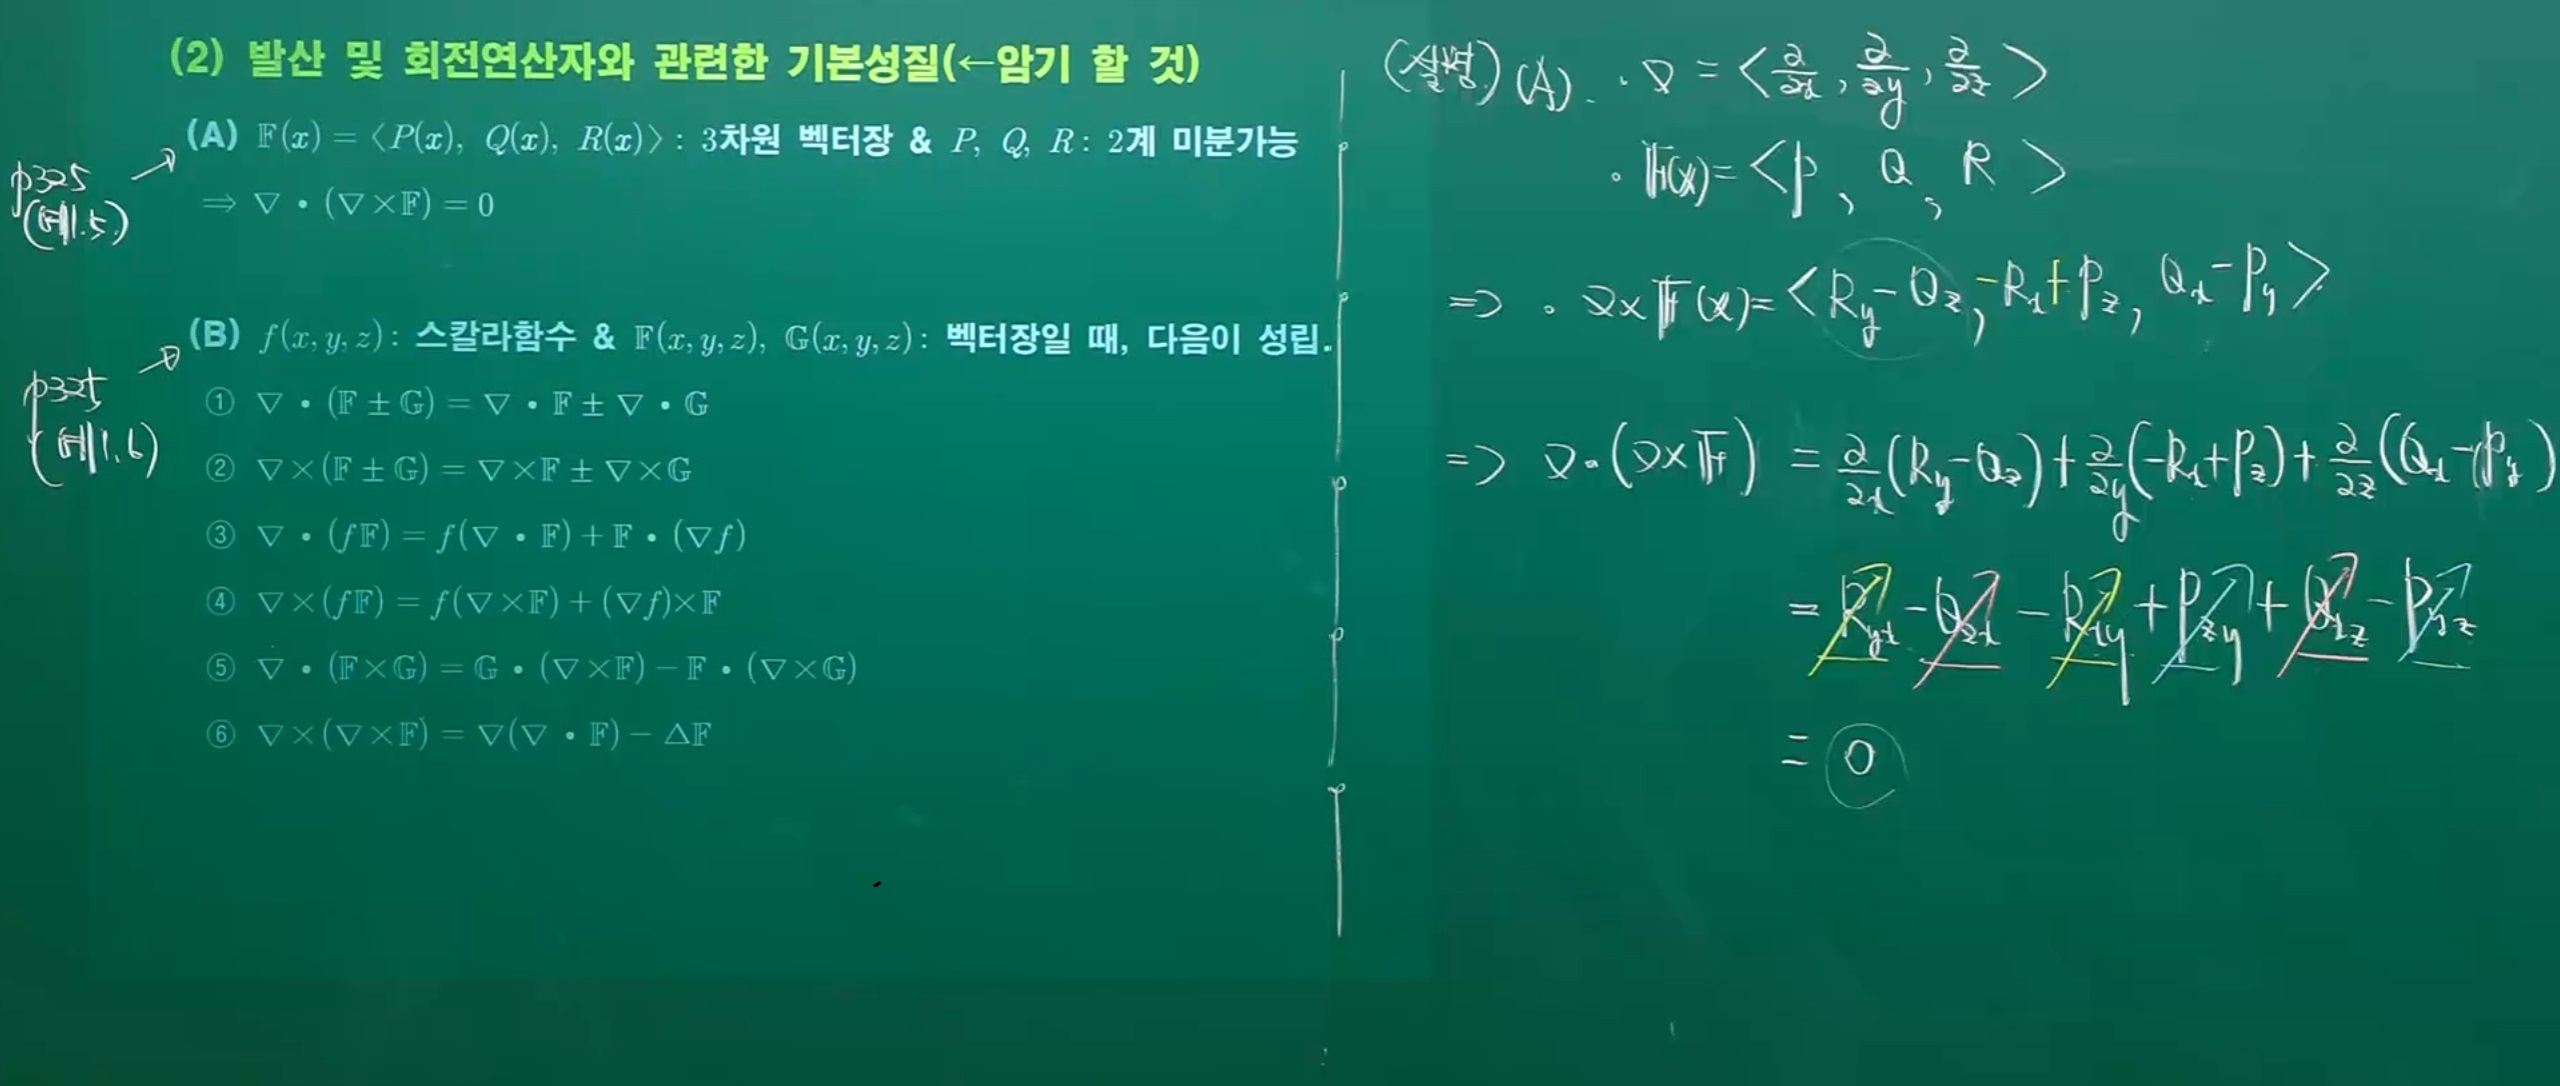 (2) 발산 및 회전연산자와 관련한 기본성질(←암기 할 것)
(A) 𝔽(x) = ⟨P(x), Q(x), R(x)⟩ : 3차원 벡터장 & P, Q, R : 2계 미분가능
p325
(예1.5)
⇒ ∇ • (∇×𝔽) = 0
(B) f(x, y, z) : 스칼라함수 & 𝔽(x, y, z), 𝔾(x, y, z) : 벡터장일 때, 다음이 성립.
p325
(예1.6)
① ∇ • (𝔽 ± 𝔾) = ∇ • 𝔽 ± ∇ • 𝔾
② ∇×(𝔽 ± 𝔾) = ∇×𝔽 ± ∇×𝔾
③ ∇ • (f𝔽) = f(∇ • 𝔽) + 𝔽 • (∇f)
④ ∇×(f𝔽) = f(∇×𝔽) + (∇f)×𝔽
⑤ ∇ • (𝔽×𝔾) = 𝔾 • (∇×𝔽) − 𝔽 • (∇×𝔾)
⑥ ∇×(∇×𝔽) = ∇(∇ • 𝔽) − Δ𝔽
(설명) (A). · ∇ = < ∂/∂x, ∂/∂y, ∂/∂z >
· 𝔽(x) = < P, Q, R >
⇒ · ∇×𝔽(x) = < R_y − Q_z, −R_x + P_z, Q_x − P_y >
⇒ ∇·(∇×𝔽) = ∂/∂x (R_y − Q_z) + ∂/∂y (−R_x + P_z) + ∂/∂z (Q_x − P_y)
= R_yx − Q_zx − R_xy + P_zy + Q_xz − P_yz
= 0